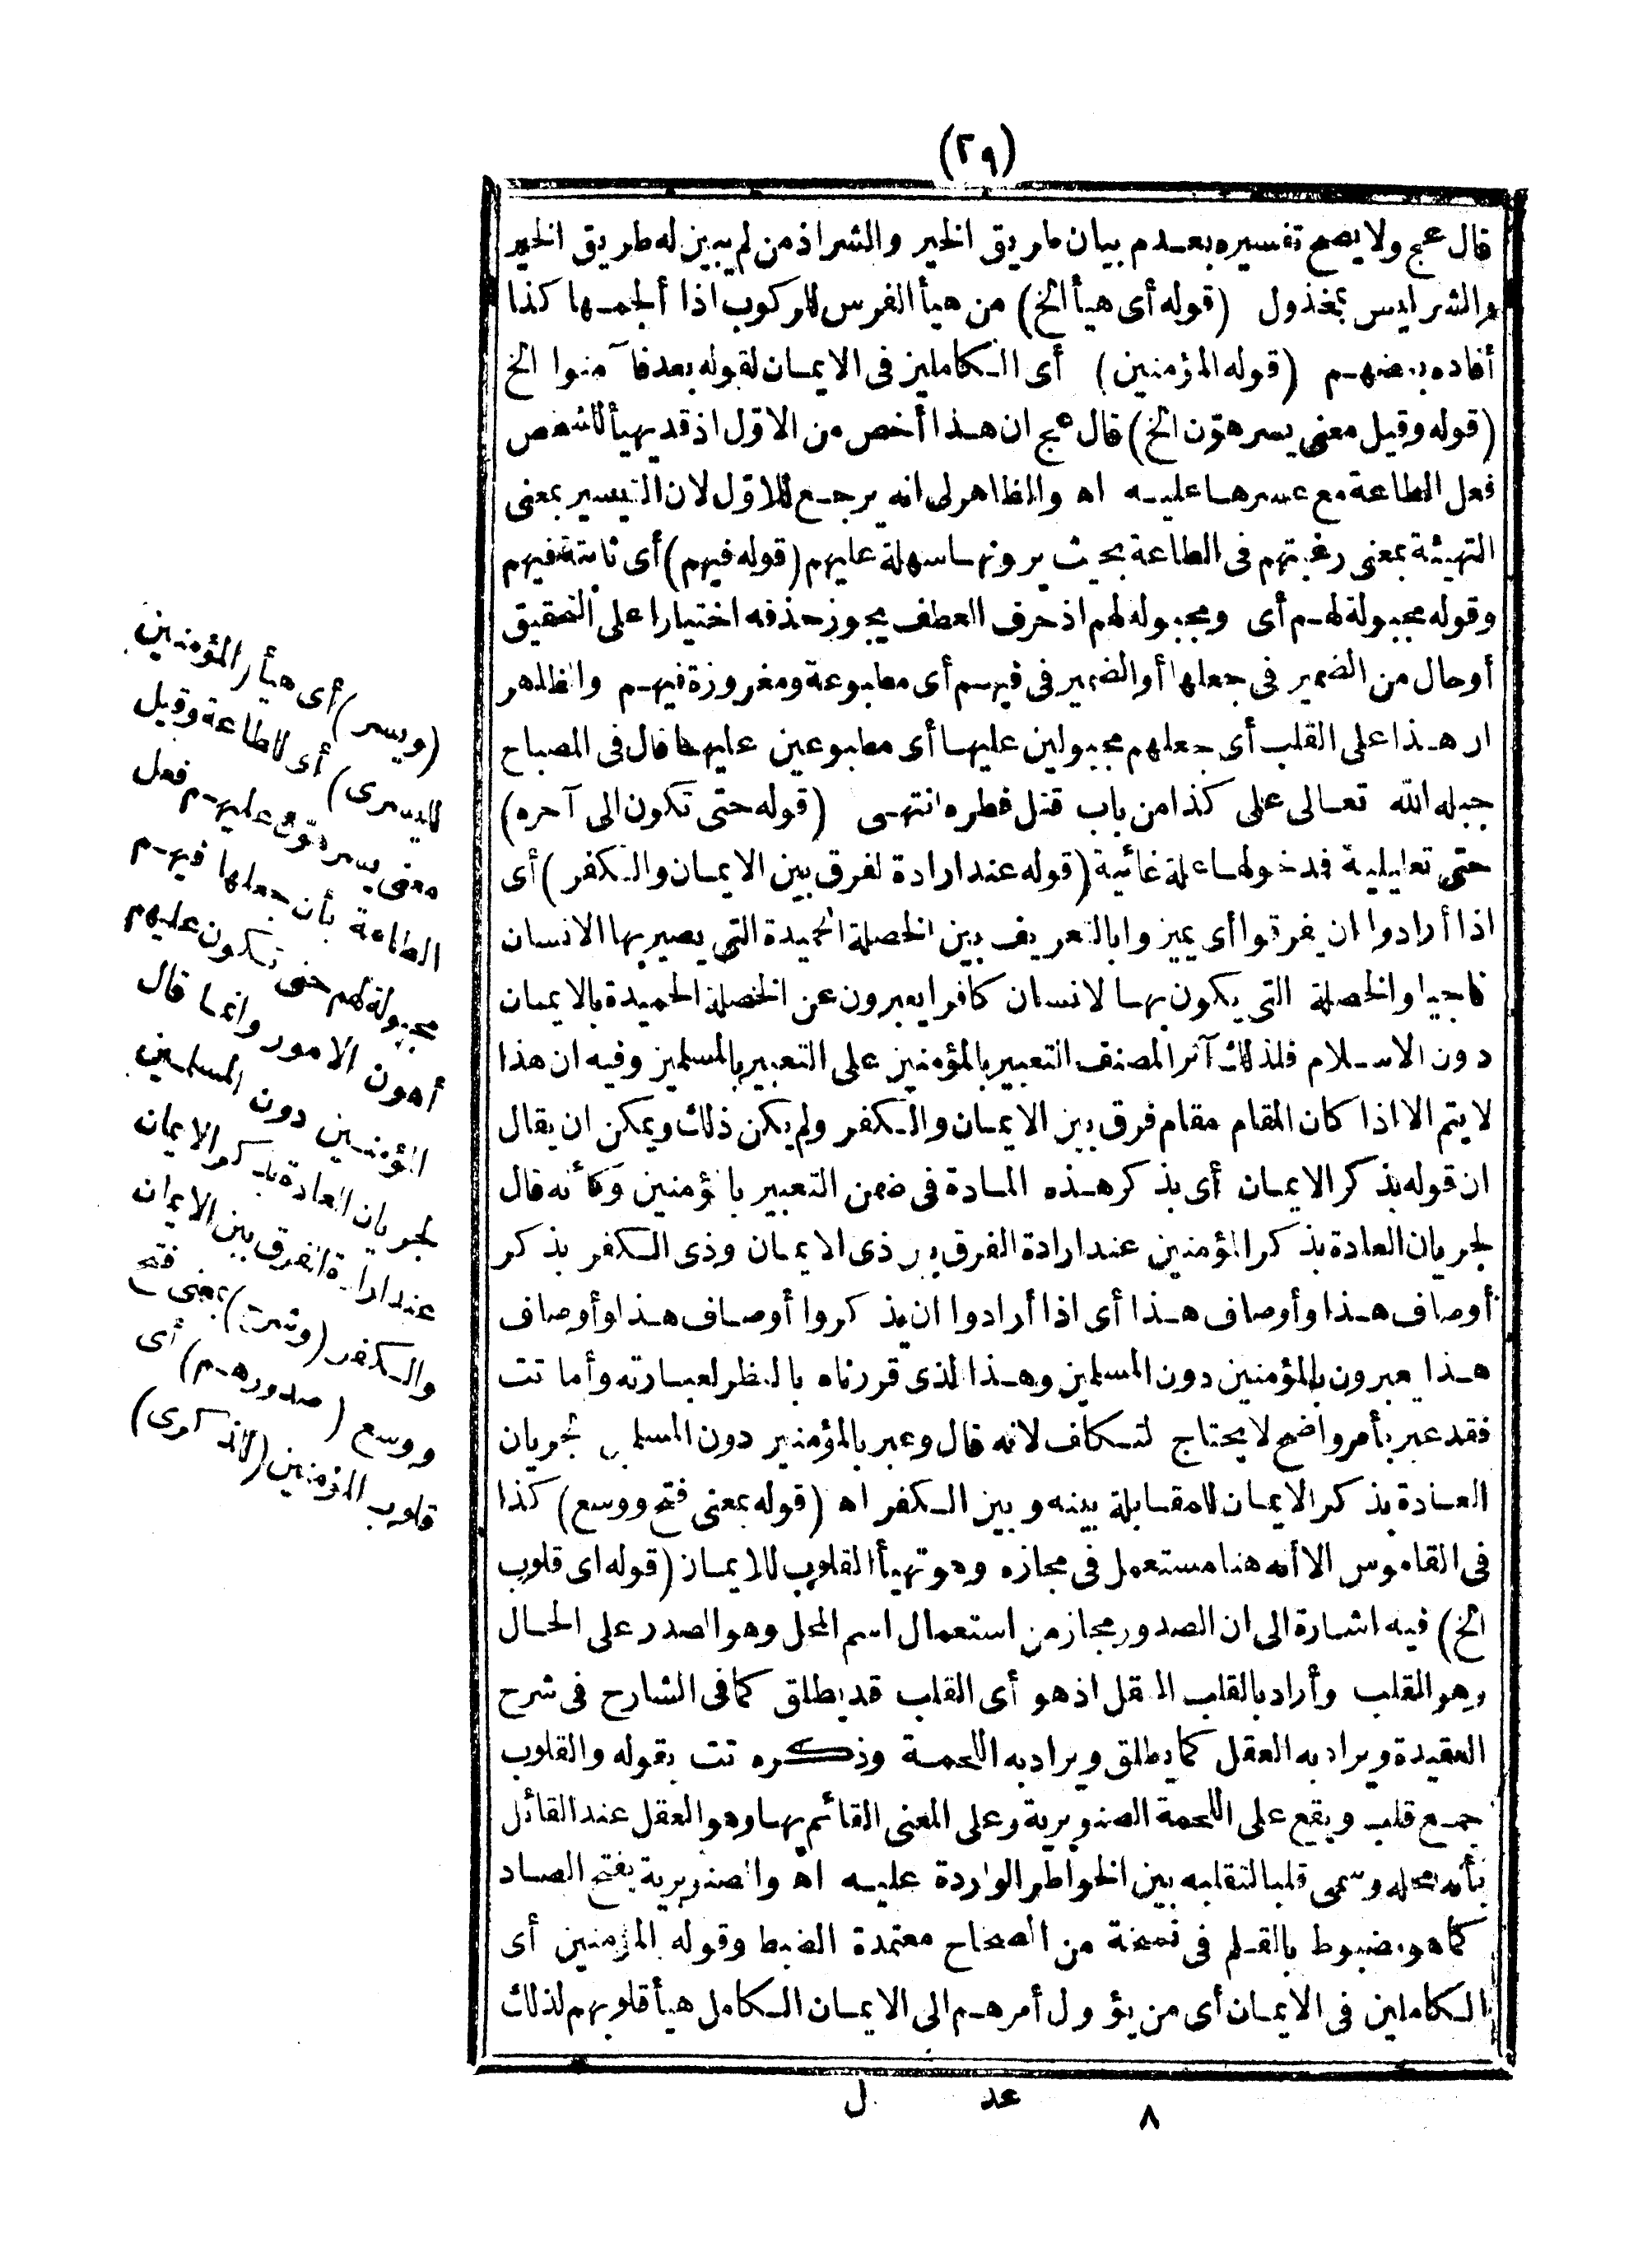 (٢٩)
قال عج ولا يصح تفسيره بعدم بيان طريق الخير والشر اذ من لم يبين له طريق الخير
والشر ليس بمخذول (قوله أى هيأ الخ) من هيأ الفرس للركوب اذا ألجمها كذا
أفاده بعضهم (قوله المؤمنين) أى الكاملين فى الايمان لقوله بعد فآمنوا الخ
(قوله وقيل معنى يسر هوّن الخ) قال عج ان هذا أخص من الاوّل اذ قد يهيأ للشخص
فعل الطاعة مع عسرها عليه اه والظاهر لى انه يرجع للاوّل لان التيسير بمعنى
التهيئة بمعنى رغبتهم فى الطاعة بحيث يرونها سهلة عليهم (قوله فيهم) أى ثابتة فيهم
وقوله مجبولة لهم أى ومجبوله لهم اذ حرف العطف يجوز حذفه اختيارا على التحقيق
أو حال من الضمير فى جعلها أو الضمير فى فيهم أى مطبوعة ومغروزة فيهم والظاهر
ان هذا على القلب أى جعلهم مجبولين عليها أى مطبوعين عليها قال فى المصباح
جبله الله تعالى على كذا من باب قتل فطره انتهى (قوله حتى تكون الى آخره)
حتى تعليلية فدخولها علة غائية (قوله عند ارادة لفرق بين الايمان والكفر) أى
اذا أرادوا ان يفرقوا أى يميزوا بالتعريف بين الخصلة الحميدة التى يصير بها الانسان
ناجيا والخصلة التى يكون بها لانسان كافرا يعبرون عن الخصلة الحميدة بالايمان
دون الاسلام فلذلك آثر المصنف التعبير بالمؤمنين على التعبير بالمسلمين وفيه ان هذا
لا يتم الا اذا كان المقام مقام فرق بين الايمان والكفر ولم يكن ذلك ويمكن ان يقال
ان قوله بذكر الايمان أى بذكر هذه المادة فى ضمن التعبير بالمؤمنين وكأنه قال
لجريان العادة بذكر المؤمنين عند ارادة الفرق بين ذى الايمان وذى الكفر بذكر
أوصاف هذا وأوصاف هذا أى اذا أرادوا ان يذكروا أوصاف هذا وأوصاف
هذا يعبرون بالمؤمنين دون المسلمين وهذا لذى قررناه بالنظر لعبارته وأما تت
فقد عبر بأمر واضح لا يحتاج لتكلف لانه قال وعبر بالمؤمنين دون المسلمين لجريان
العادة بذكر الايمان للمقابلة بينه وبين الكفر اه (قوله بمعنى فتح ووسع) كذا
فى القاموس الا أنه هنا مستعمل فى مجازه وهو تهيأ القلوب للايمان (قوله اى قلوب
الخ) فيه اشارة الى ان الصدور مجاز من استعمال اسم المحل وهو الصدر على الحال
وهو القلب وأراد بالقلب العقل اذ هو أى القلب قد يطلق كما فى الشارح فى شرح
العقيدة ويراد به العقل كما يطلق ويراد به اللحمة وذكره تت بقوله والقلوب
جمع قلب ويقع على اللحمة الصنوبرية وعلى المعنى القائم بها وهو العقل عند القائل
بأنه محله وسمى قلبا لتقلبه بين الخواطر الواردة عليه اه والصنوبرية بفتح الصاد
كما هو مضبوط بالقلم فى نسخة من الصحاح معتمدة الضبط وقوله المؤمنين أى
الكاملين فى الايمان أى من يؤول أمرهم الى الايمان الكامل هيأ قلوبهم لذلك
(ويسر) أى هيأ (المؤمنين
لليسرى) أى للطاعة وقيل
معنى يسر هوّن عليهم فعل
الطاعة بأن جعلها فيهم
مجبولة لهم حتى تكون عليهم
أهون الامور وانما قال
المؤمنين دون المسلمين
لجريان العادة بذكر الايمان
عند ارادة الفرق بين الايمان
والكفر (وشرح) بمعنى فتح
ووسع (صدورهم) أى
قلوب المؤمنين (للذكرى)
٨ عد ل